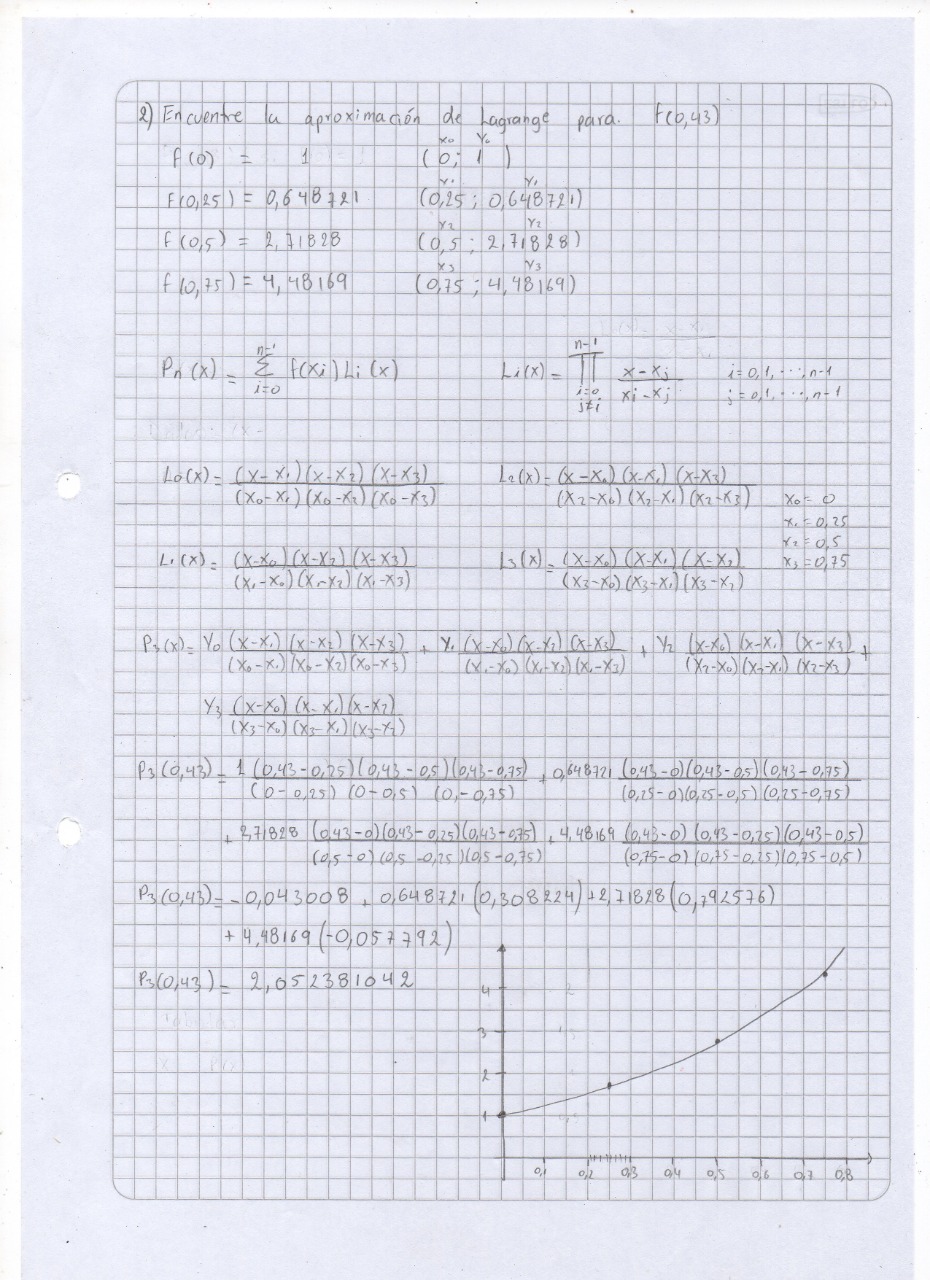 2) Encuentre la aproximación de Lagrange para. f(0,43)
x₀ y₀
f(0) = 1 (0; 1)
x₁ y₁
f(0,25) = 0,648721 (0,25; 0,648721)
x₂ y₂
f(0,5) = 2,71828 (0,5; 2,71828)
x₃ y₃
f(0,75) = 4,48169 (0,75; 4,48169)
n-1 n-1
Pn(x) = Σ f(xi) Li(x) Li(x) = ∏ x-xj / xi-xj i=0,1,...,n-1
i=0 i=0 j=0,1,...,n-1
j≠i
L₀(x) = (x-x₁)(x-x₂)(x-x₃) / (x₀-x₁)(x₀-x₂)(x₀-x₃) L₂(x) = (x-x₀)(x-x₁)(x-x₃) / (x₂-x₀)(x₂-x₁)(x₂-x₃)
x₀ = 0
x₁ = 0,25
x₂ = 0,5
x₃ = 0,75
L₁(x) = (x-x₀)(x-x₂)(x-x₃) / (x₁-x₀)(x₁-x₂)(x₁-x₃) L₃(x) = (x-x₀)(x-x₁)(x-x₂) / (x₃-x₀)(x₃-x₁)(x₃-x₂)
P₃(x) = y₀ (x-x₁)(x-x₂)(x-x₃) / (x₀-x₁)(x₀-x₂)(x₀-x₃) + y₁ (x-x₀)(x-x₂)(x-x₃) / (x₁-x₀)(x₁-x₂)(x₁-x₃) + y₂ (x-x₀)(x-x₁)(x-x₃) / (x₂-x₀)(x₂-x₁)(x₂-x₃) +
y₃ (x-x₀)(x-x₁)(x-x₂) / (x₃-x₀)(x₃-x₁)(x₃-x₂)
P₃(0,43) = 1 (0,43-0,25)(0,43-0,5)(0,43-0,75) / (0-0,25)(0-0,5)(0,-0,75) + 0,648721 (0,43-0)(0,43-0,5)(0,43-0,75) / (0,25-0)(0,25-0,5)(0,25-0,75)
+ 2,71828 (0,43-0)(0,43-0,25)(0,43-0,75) / (0,5-0)(0,5-0,25)(0,5-0,75) + 4,48169 (0,43-0)(0,43-0,25)(0,43-0,5) / (0,75-0)(0,75-0,25)(0,75-0,5)
P₃(0,43) = -0,043008 + 0,648721(0,308224) + 2,71828(0,792576)
+ 4,48169(-0,057792)
P₃(0,43) = 2,052381042
4
3
2
1
0,1 0,2 0,3 0,4 0,5 0,6 0,7 0,8